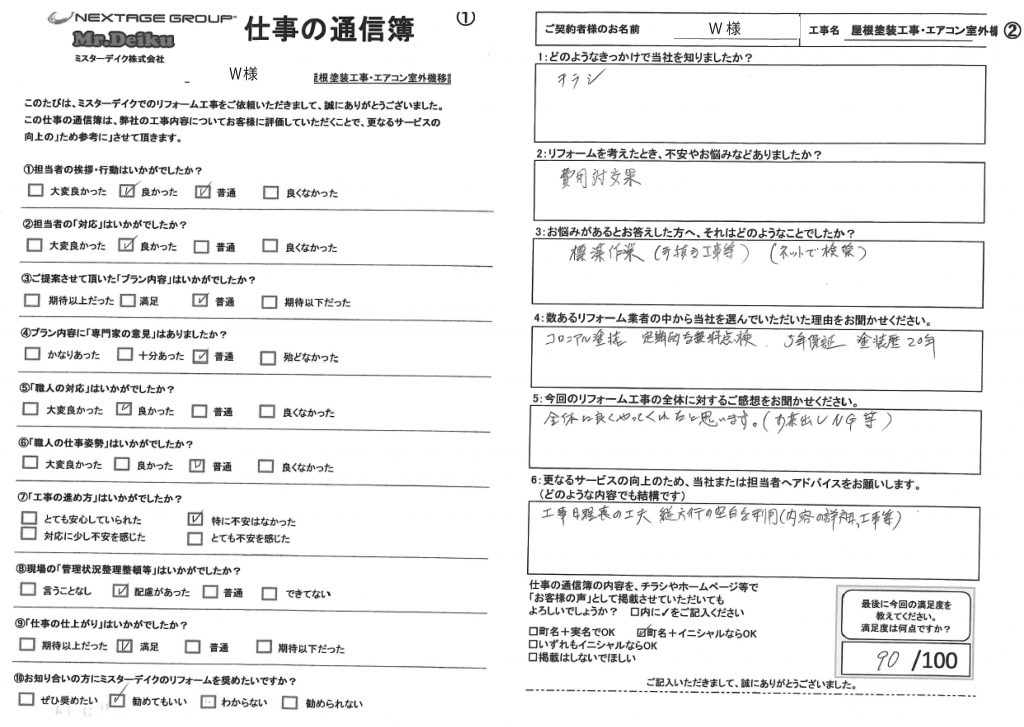 NEXTAGE GROUP
Mr.Deiku
ミスターデイク株式会社
仕事の通信簿
①
W様
屋根塗装工事・エアコン室外機移
このたびは、ミスターデイクでのリフォーム工事をご依頼いただきまして、誠にありがとうございました。
この仕事の通信簿は、弊社の工事内容についてお客様に評価していただくことで、更なるサービスの
向上の」ため参考に」させて頂きます。
①担当者の挨拶・行動はいかがでしたか?
□ 大変良かった ☑ 良かった ☑ 普通 □ 良くなかった
②担当者の「対応」はいかがでしたか?
□ 大変良かった ☑ 良かった □ 普通 □ 良くなかった
③ご提案させて頂いた「プラン内容」はいかがでしたか?
□ 期待以上だった □ 満足 ☑ 普通 □ 期待以下だった
④プラン内容に「専門家の意見」はありましたか?
□ かなりあった □ 十分あった ☑ 普通 □ 殆どなかった
⑤「職人の対応」はいかがでしたか?
□ 大変良かった ☑ 良かった □ 普通 □ 良くなかった
⑥「職人の仕事姿勢」はいかがでしたか?
□ 大変良かった □ 良かった ☑ 普通 □ 良くなかった
⑦「工事の進め方」はいかがでしたか?
□ とても安心していられた ☑ 特に不安はなかった
□ 対応に少し不安を感じた □ とても不安を感じた
⑧現場の「管理状況整理整頓等」はいかがでしたか?
□ 言うことなし ☑ 配慮があった □ 普通 □ できてない
⑨「仕事の仕上がり」はいかがでしたか?
□ 期待以上だった ☑ 満足 □ 普通 □ 期待以下だった
⑩お知り合いの方にミスターデイクのリフォームを奨めたいですか?
□ ぜひ奨めたい ☑ 勧めてもいい □ わからない □ 勧められない
ご契約者様のお名前 W様 工事名 屋根塗装工事・エアコン室外機 ②
1:どのようなきっかけで当社を知りましたか?
チラシ
2:リフォームを考えたとき、不安やお悩みなどありましたか?
費用対効果
3:お悩みがあるとお答えした方へ、それはどのようなことでしたか?
標準作業 (手抜き工事等) (ネットで検索)
4:数あるリフォーム業者の中から当社を選んでいただいた理由をお聞かせください。
コロニアル塗装 定期的な無料点検、5年保証 塗装歴20年
5:今回のリフォーム工事の全体に対するご感想をお聞かせください。
全体に良くやってくれたと思います。(お茶出しNG等)
6:更なるサービスの向上のため、当社または担当者へアドバイスをお願いします。
(どのような内容でも結構です)
工事日程表の工夫 の空白を利用(内容の詳細、工事等)
仕事の通信簿の内容を、チラシやホームページ等で
「お客様の声」として掲載させていただいても
よろしいでしょうか? □内に✓をご記入ください
□町名+実名でOK ☑町名+イニシャルならOK
□いずれもイニシャルならOK
□掲載はしないでほしい
最後に今回の満足度を
教えてください。
満足度は何点ですか?
90 /100
ご記入いただきまして、誠にありがとうございました。